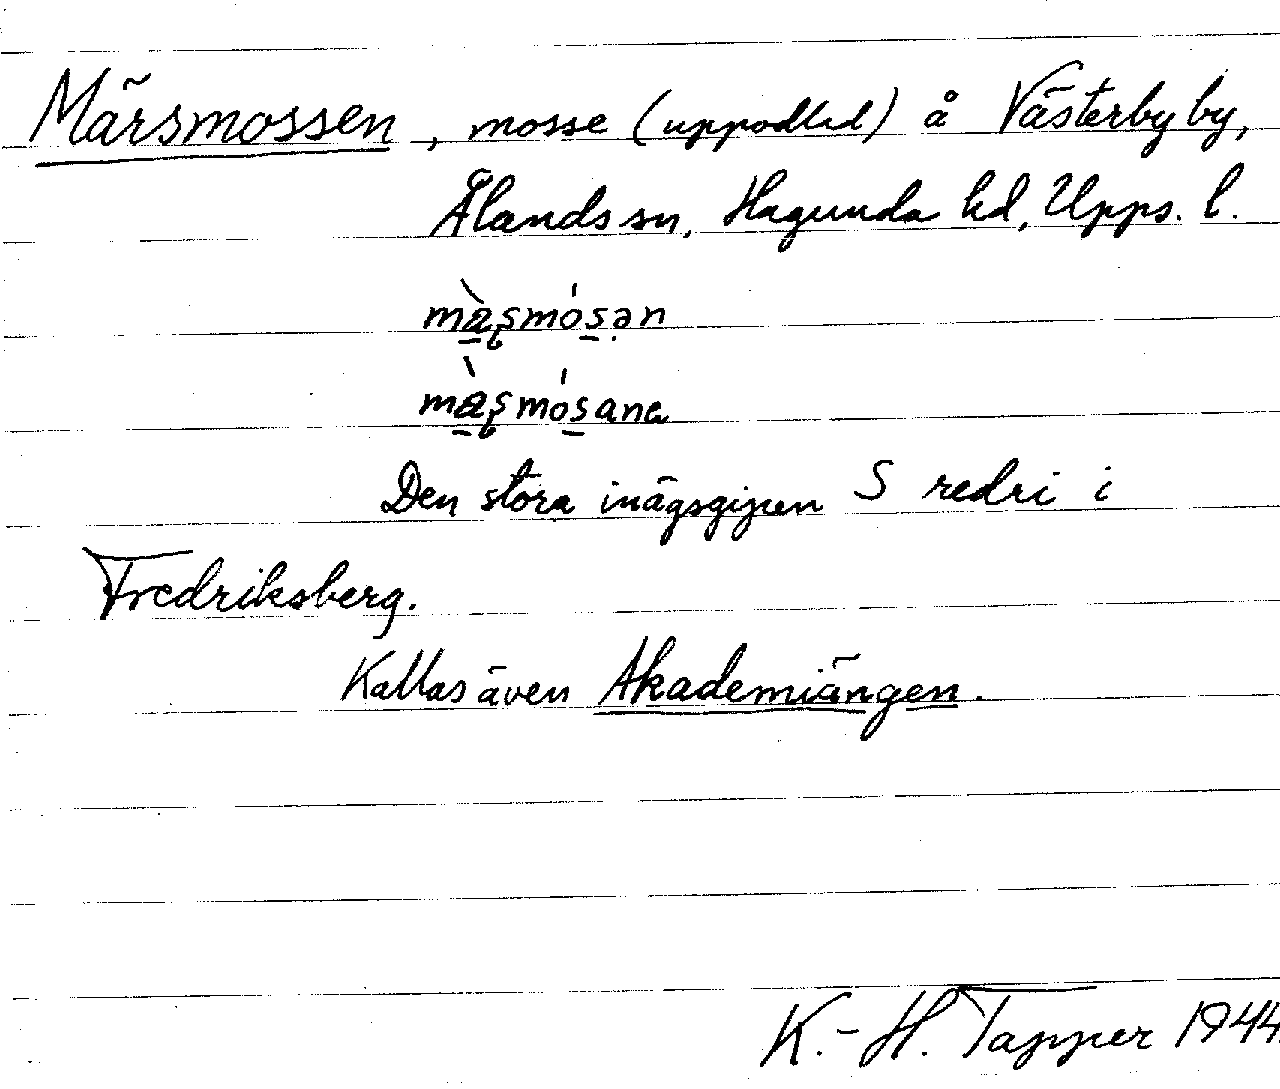 Märsmossen, mosse (uppodlad) å Västerby by,
Ålands sn, Hagunda hd, Upps. l.
màʂmósən
màʂmósana
Den stora inägsgipen S redri i
Fredriksberg.
Kallas även Akademiängen.
K.-H. Tapper 1944